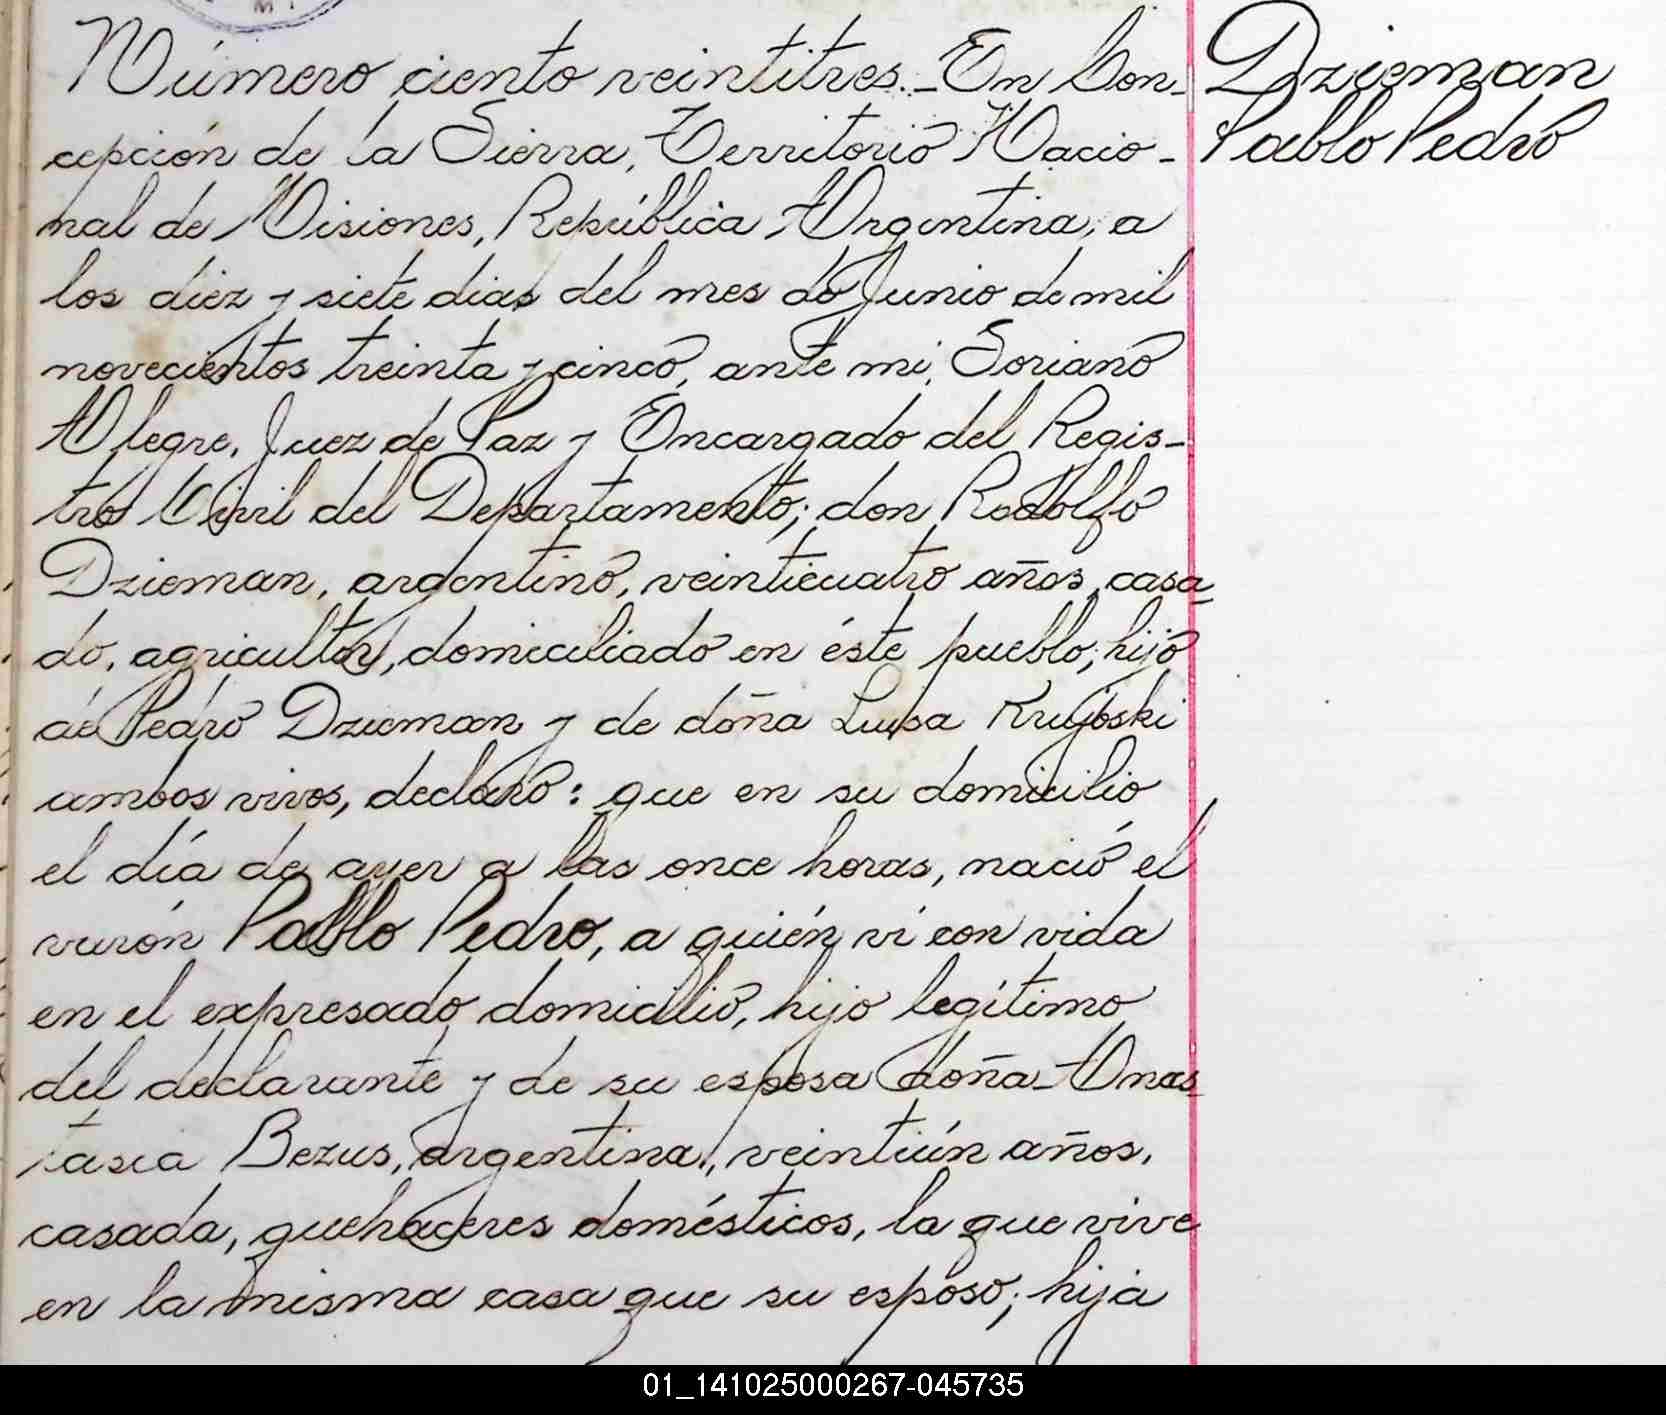 Número ciento veintitres.- En Con-
cepción de la Sierra, Territorio Nacio-
nal de Misiones, República Argentina, a
los diez y siete dias del mes de Junio de mil
novecientos treinta y cinco, ante mi, Soriano
Alegre, Juez de Paz y Encargado del Regis-
tro Civil del Departamento; don Rodolfo
Dzieman, argentino, veinticuatro años, casa-
do, agricultor, domiciliado en éste pueblo; hijo
de Pedro Dzieman y de doña Luisa Krujoski
ambos vivos, declaró: que en su domicilio
el día de ayer a las once horas, nació el
varón Pablo Pedro, a quién ví con vida
en el expresado domicilio, hijo legítimo
del declarante y de su esposa doña Anas-
tasia Bezus, argentina, veintiún años,
casada, quehaceres domésticos, la que vive
en la misma casa que su esposo; hija
Dzieman
Pablo Pedro
01_141025000267-045735